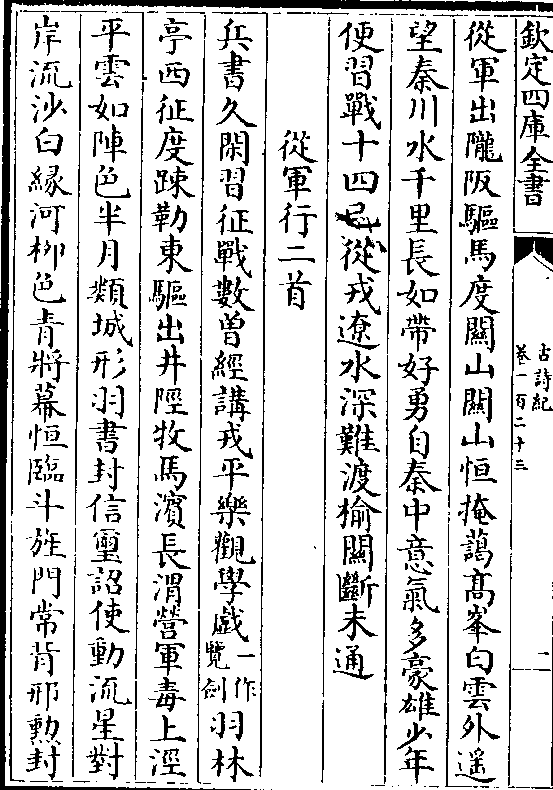 欽定四庫全書
古詩紀
卷一百二十三
二
從軍出隴阪驅馬度關山關山恒掩藹高峯白雲外遥
望秦川水千里長如帶好勇自秦中意氣多豪雄少年
便習戰十四已從戎遼水深難渡榆關斷未通
從軍行二首
兵書久閑習征戰數曽經講戎平樂觀學戲一作覽劍羽林
亭西征度踈勒東驅出井陘牧馬濱長渭營軍毒上涇
平雲如陣色半月類城形羽書封信璽詔使動流星對
岸流沙白緣河栁色青將幕恒臨斗旌門常背邢勲封